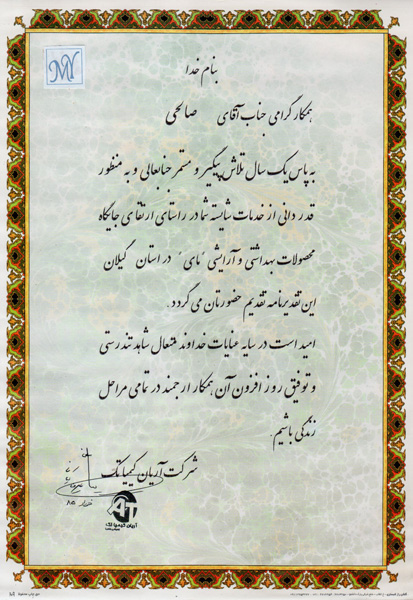 MY
بنام خدا
همکار گرامی جناب آقای صالحی
به پاس یک سال تلاش پیگیر و مستمر جنابعالی و به منظور
قدردانی از خدمات شایسته شما در راستای ارتقای جایگاه
محصولات بهداشتی و آرایشی "مای" در استان گیلان
این تقدیرنامه تقدیم حضورتان می گردد.
امید است در سایه عنایات خداوند متعال شاهد تندرستی
و توفیق روز افزون آن همکار ارجمند در تمامی مراحل
زندگی باشیم.
شرکت آریان کیمیا تک
AT
آریان کیمیا تک